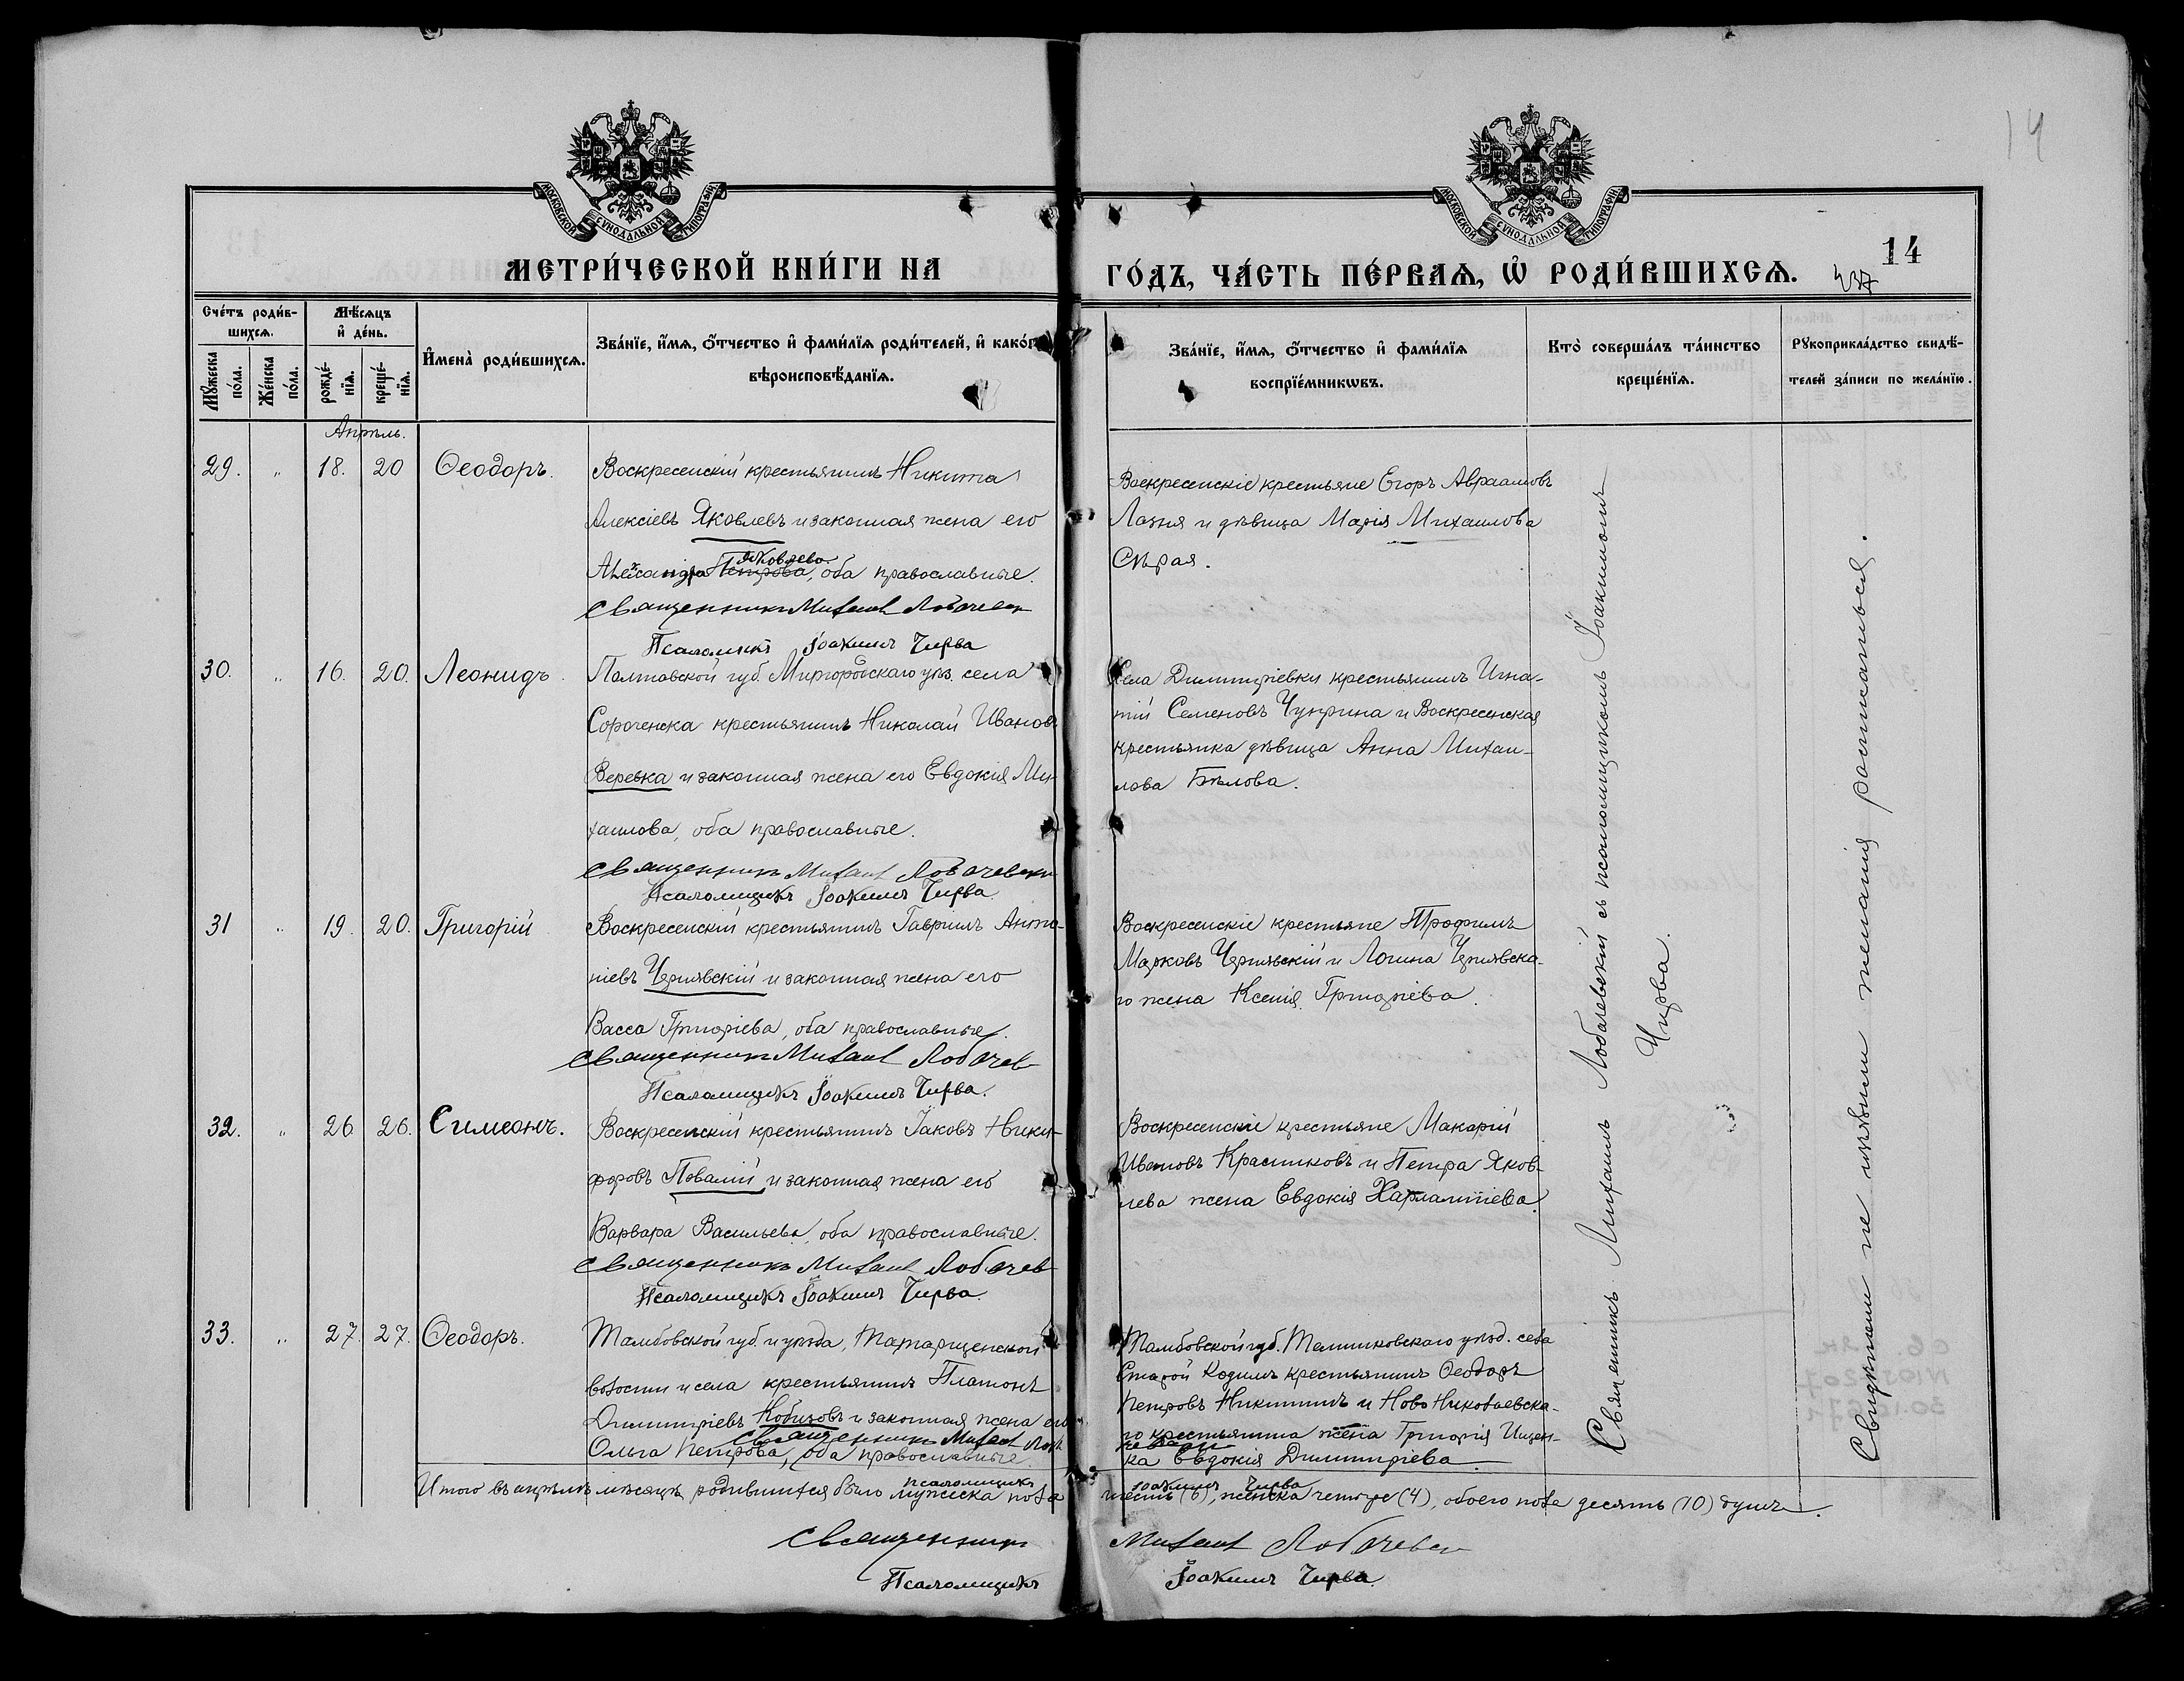 14
МОСКОВСКОЙ СѴНОДАЛЬНОЙ ТИПОГРАФІИ
МОСКОВСКОЙ СѴНОДАЛЬНОЙ ТИПОГРАФІИ
МЕТРИ́ЧЕСКОЙ КНИ́ГИ НА
ГО́ДЪ, ЧА́СТЬ ПЕ́РВАѦ, Ѽ РОДИ́ВШИХСѦ.
14
Сче́тъ роди́в-
шихсѧ.
Мꙋжеска
по́ла.
Же́нска
по́ла.
Мѣ́сѧцъ
и҆ де́нь.
рожде́-
нїѧ.
креще́-
нїѧ.
И҆мена̀ роди́вшихсѧ.
Зва́нїе, и҆́мѧ, ѻ҆́тчество и҆ фами́лїѧ роди́телей, и҆ како́гѡ
вѣроисповѣ́данїѧ.
Зва́нїе, и҆́мѧ, ѻ҆́тчество и҆ фами́лїѧ
воспрїе́мникѡвъ.
Кто̀ соверша́лъ та́инство
креще́нїѧ.
Рꙋкоприкла́дство свидѣ́-
телей за́писи по жела́нїю.
Апрѣль.
29. „ 18. 20 Ѳеодоръ.
Воскресенскій крестьянинъ Никита
Алексіевъ Яковлевъ и законная жена его
Яковлева
Александра Петрова, оба православные.
Священникъ Михаил Лобачев
Псаломщикъ Іоакимъ Чирва
Воскресенскіе крестьяне Егоръ Авраамовъ
Лазня и дѣвица Марія Михаилова
Сѣрая.
30. „ 16. 20. Леонидъ.
Полтавской губ. Миргородскаго уѣз. села
Сороченска крестьянинъ Николай Ивановъ
Веревка и законная жена его Евдокія Ми-
хаилова, оба православные.
Священникъ Михаил Лобачевски
Псаломщикъ Іоакимъ Чирва.
Села Димитріевки крестьянинъ Игна-
тій Семеновъ Чуприна и Воскресенская
крестьянка дѣвица Анна Михаи-
лова Бѣлова.
31 „ 19. 20. Григорій
Воскресенскій крестьянинъ Гавріилъ Анто-
ніевъ Чернявскій и законная жена его
Васса Григоріева, оба православные.
Священникъ Михаил Лобачев
Псаломщикъ Іоакимъ Чирва.
Воскресенскіе крестьяне Трофимъ
Марковъ Чернявскій и Логина Чернявска-
го жена Ксенія Григоріева.
32. „ 26 26. Симеонъ.
Воскресенскій крестьянинъ Іаковъ Ники-
форовъ Повалій и законная жена его
Варвара Васильева, оба православные.
Священникъ Михаил Лобачев
Псаломщикъ Іоакимъ Чирва.
Воскресенскіе крестьяне Макарій
Ивановъ Красниковъ и Петра Яков-
лева жена Евдокія Харлампіева.
33. „ 27. 27. Ѳеодоръ.
Тамбовской губ. и уѣзда, Татарщенской
волости и села крестьянинъ Платонъ
Димитріевъ Кобизовъ и законная жена его
Ольга Петрова, оба православные.
Священникъ Михаил Лоб
Тамбовской губ. Темниковскаго уѣзд. села
Старой Кадимъ крестьянинъ Ѳеодоръ
Петровъ Никитинъ и Ново Николаевска-
го крестьянина жена Григорія Ищен-
ка Евдокія Димитріева.
Псаломщикъ
Іоакимъ Чирва
Священникъ Михаилъ Лобачевскій съ псаломщикомъ Іоакимомъ
Чирва.
Свидѣтели не имѣли желанія росписаться.
Итого въ апрѣлѣ мѣсяцѣ родившихся было мужеска пола шесть (6), женска четыре (4), обоего пола десять (10) душъ.
Священникъ Михаил Лобачевск
Псаломщикъ Іоакимъ Чирва.